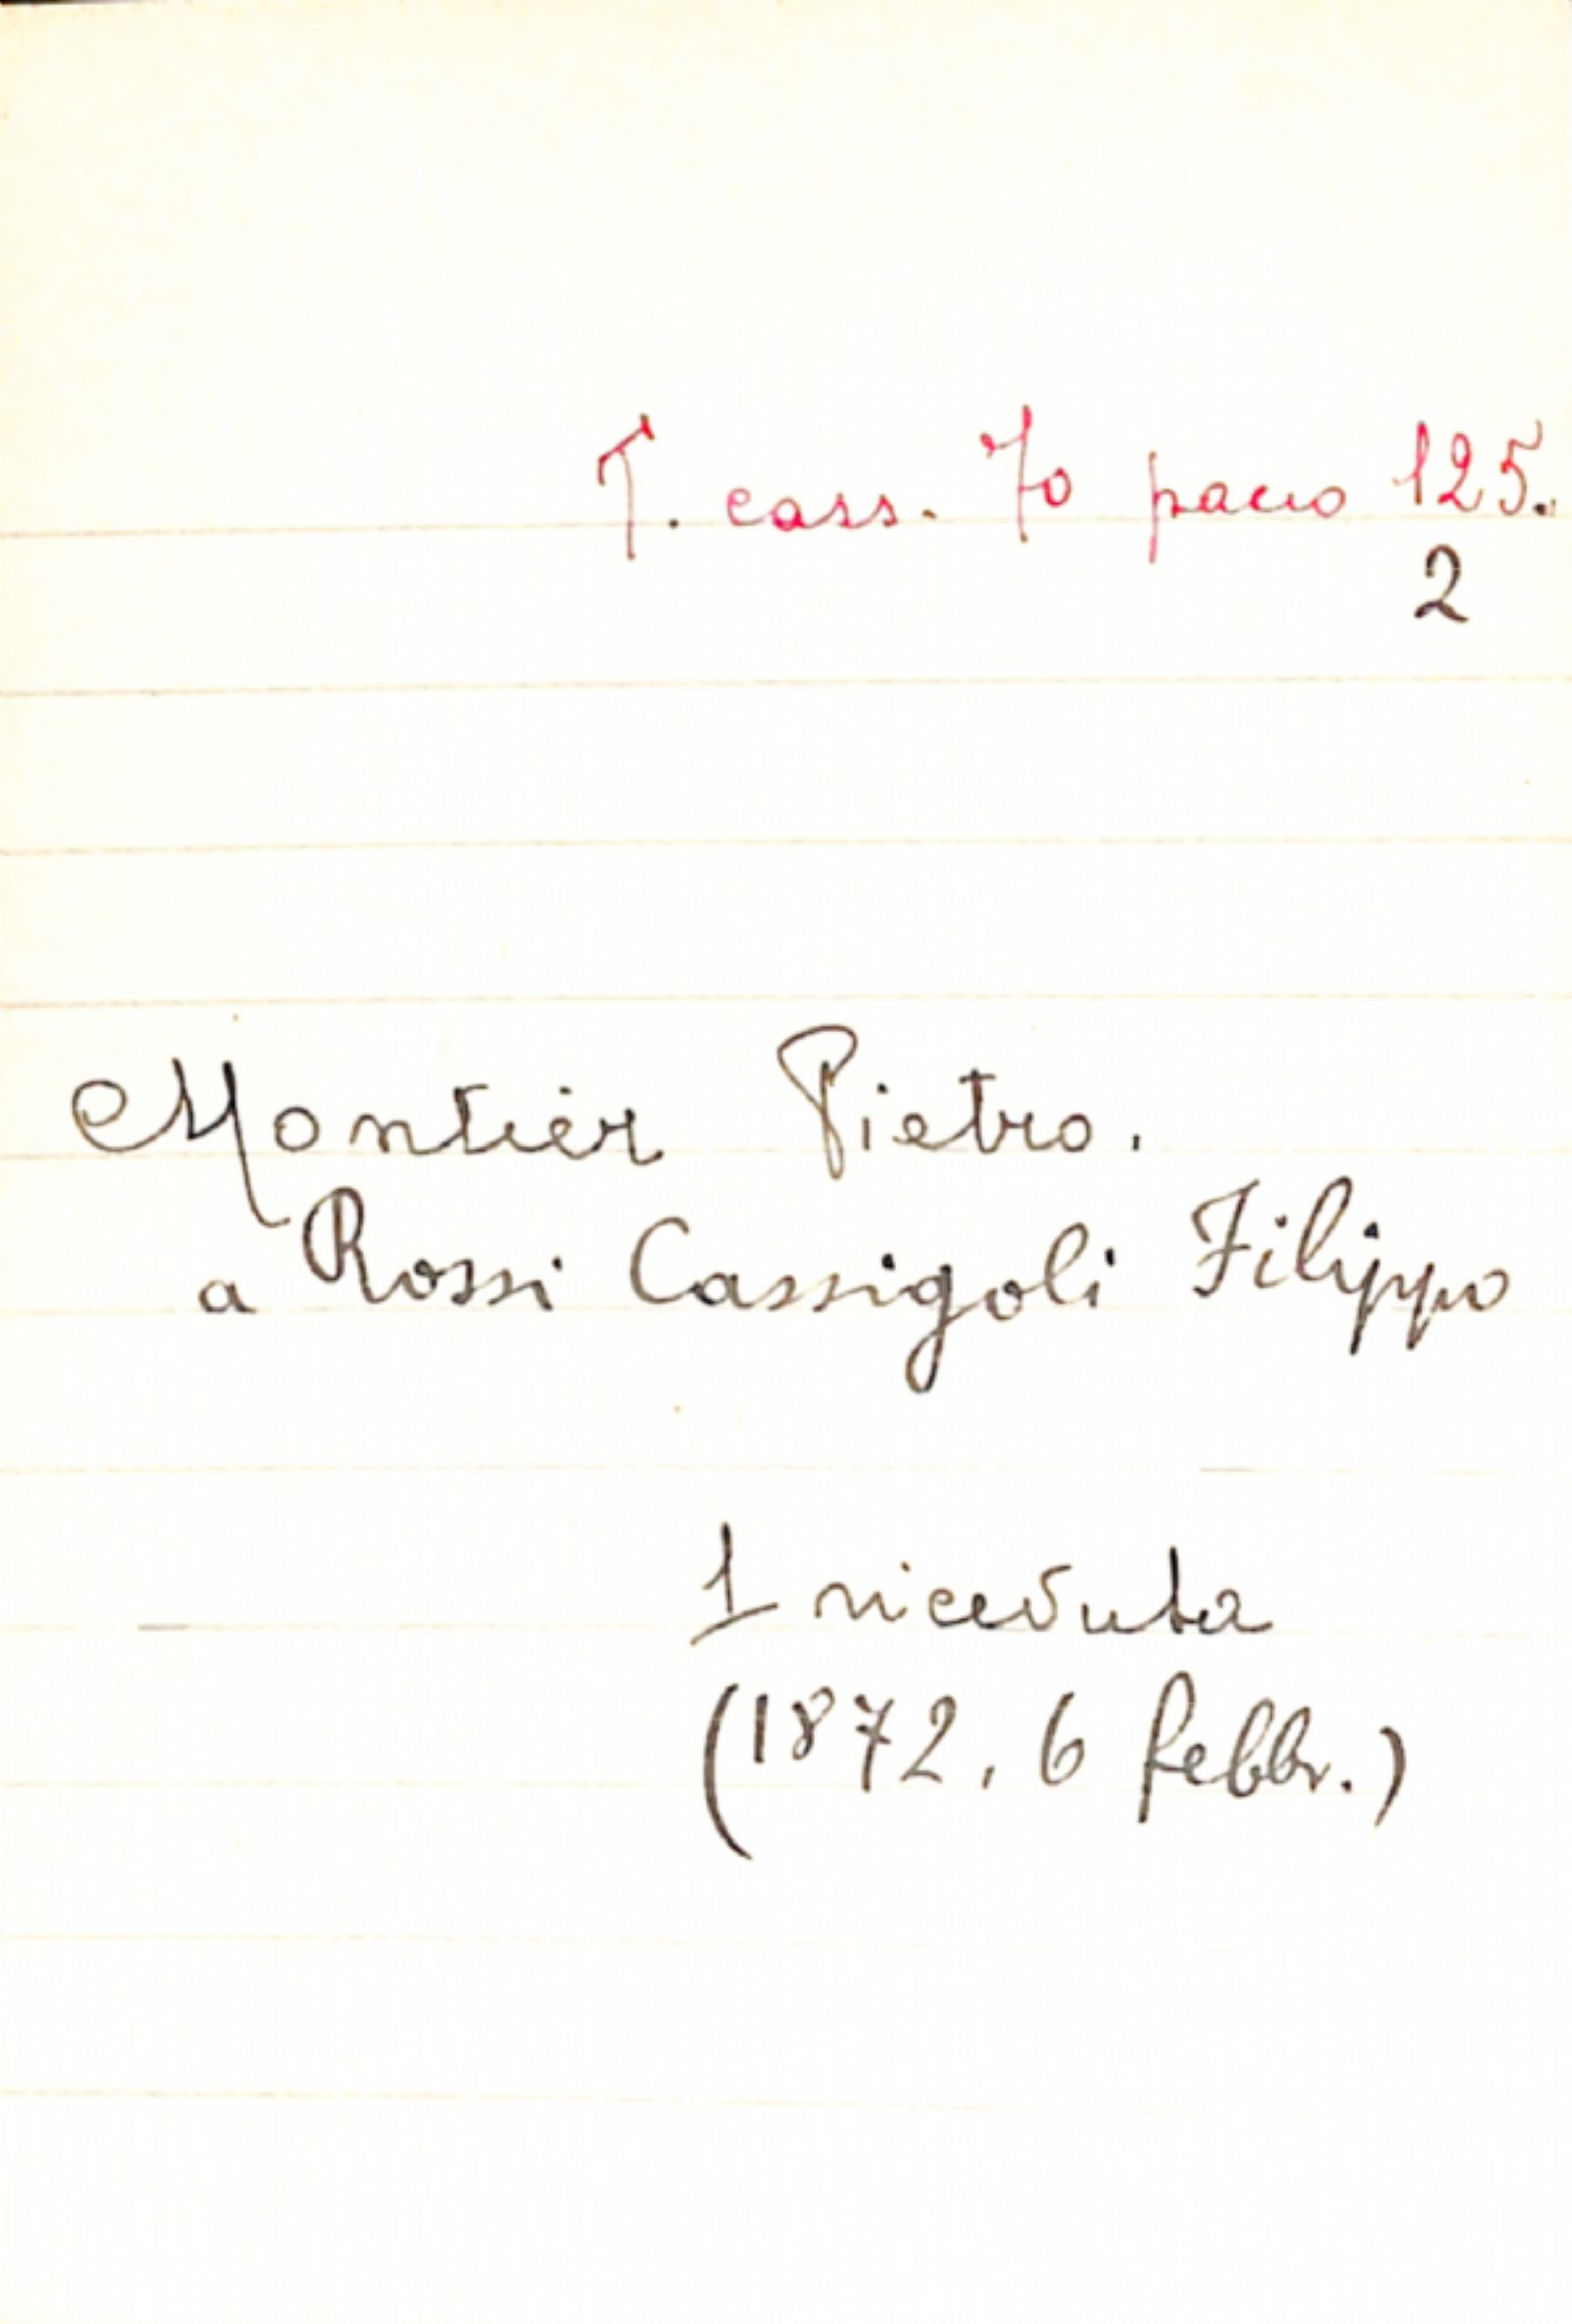 T. cass. 70 pacco 125.
2
Montier Pietro.
a Rossi Cassigoli Filippo
1 ricevuta
(1872, 6 febbr.)